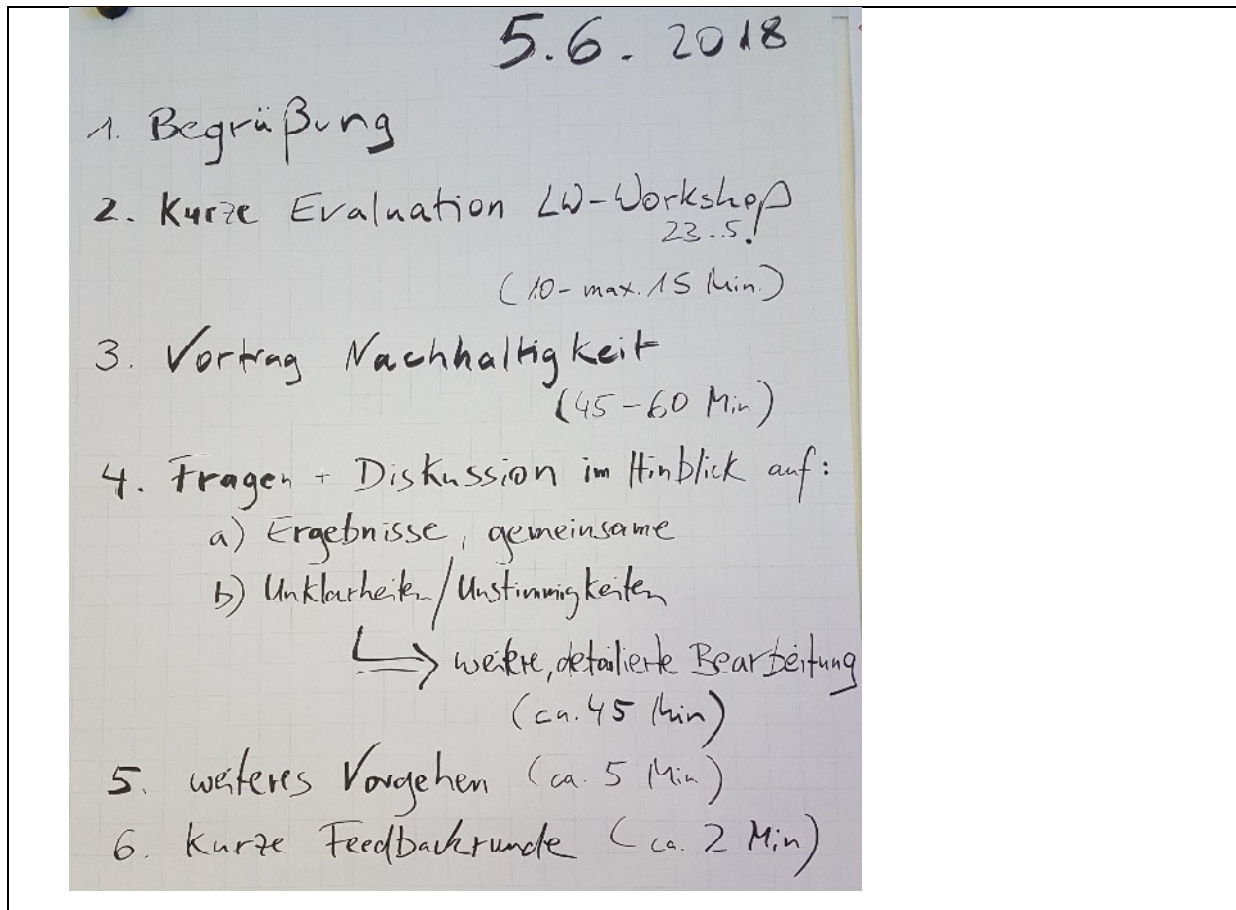 5.6. 2018
1. Begrüßung
2. Kurze Evaluation LW-Workshop
23.5.
(10- max. 15 Min.)
3. Vortrag Nachhaltigkeit
(45-60 Min)
4. Fragen + Diskussion im Hinblick auf:
a) Ergebnisse, gemeinsame
b) Unklarheiten/Unstimmigkeiten
weitere, detailierte Bearbeitung
(ca. 45 Min)
5. weiteres Vorgehen (ca. 5 Min)
6. Kurze Feedbackrunde (ca. 2 Min)